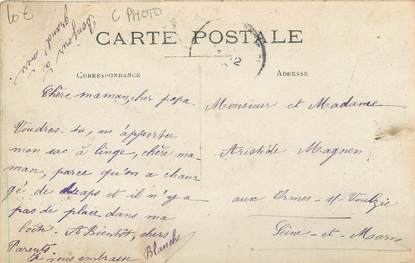 10€
C PHOTO
Bonjour à
grand' mère
CARTE POSTALE
CORRESPONDANCE
ADRESSE
Chère maman, cher papa.
Voudras-tu, m'apporter
mon sac à linge, chère ma-
man, parce qu'on a chan-
gé de draps et il n'y a
pas de place dans ma
boîte. A Bientôt, chers
Parents
Je vous embrasse
Blanche
Monsieur et Madame
Aristide Magnen
aux Ormes-s/-Voulzie
Seine-et-Marne